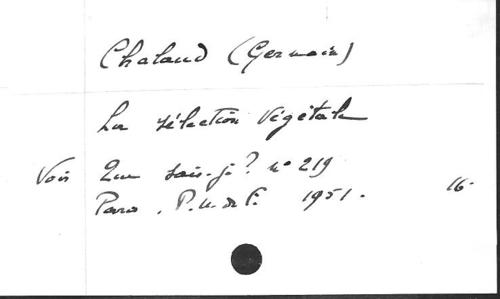 Chalaud (Germain)
La sélection végétale
Voir Que sais-je? n° 219
Paris. P.U. de F. 1951. 16-